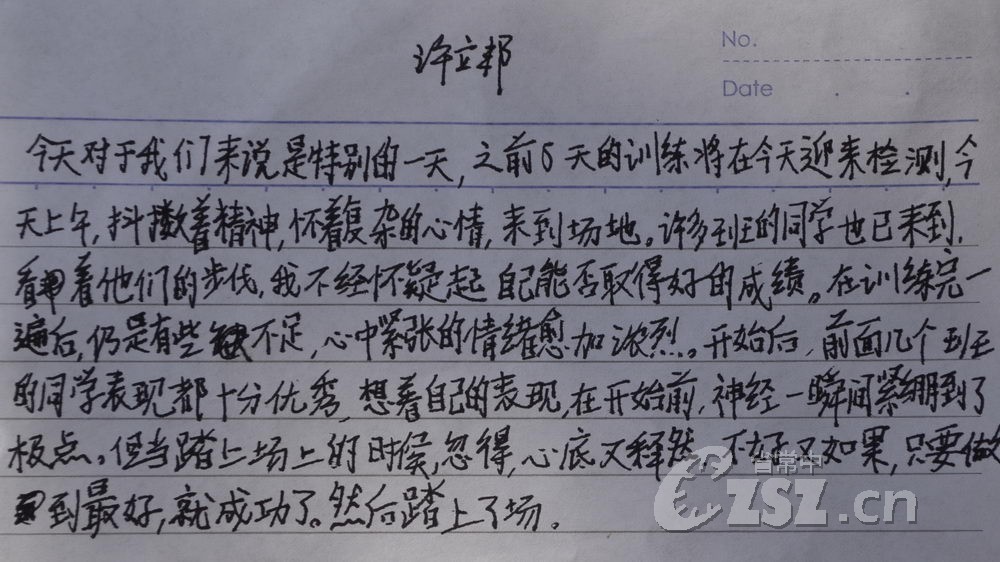 No.
许立邦
Date
今天对于我们来说是特别的一天,之前5天的训练将在今天迎来检测,今
天上午,抖擞着精神,怀着复杂的心情,来到场地。许多班的同学也已来到,
看着他们的步伐,我不经怀疑起自己能否取得好的成绩。在训练完一
遍后,仍是有些不足,心中紧张的情绪愈加浓烈。开始后,前面几个班
的同学表现都十分优秀,想着自己的表现,在开始前,神经一瞬间紧绷到了
极点。但当踏上场上的时侯,忽得,心底又释然,不好又如果,只要做
到最好,就成功了。然后踏上了场。
省常中
CZSZ.cn